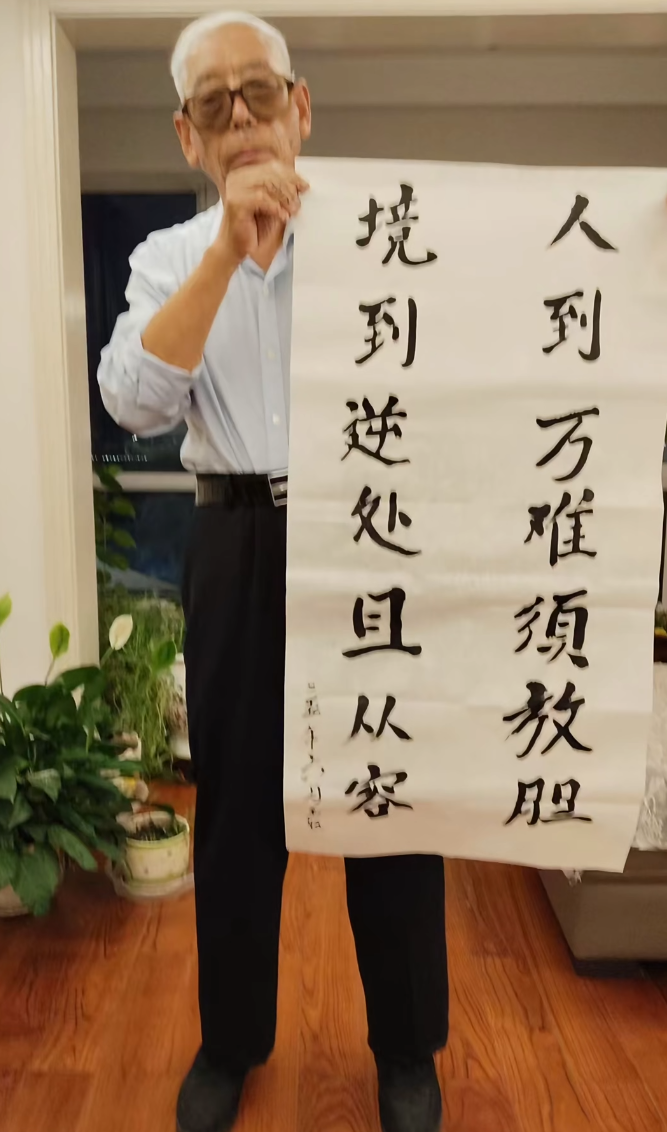 人到万难须放胆
境到逆处且从容